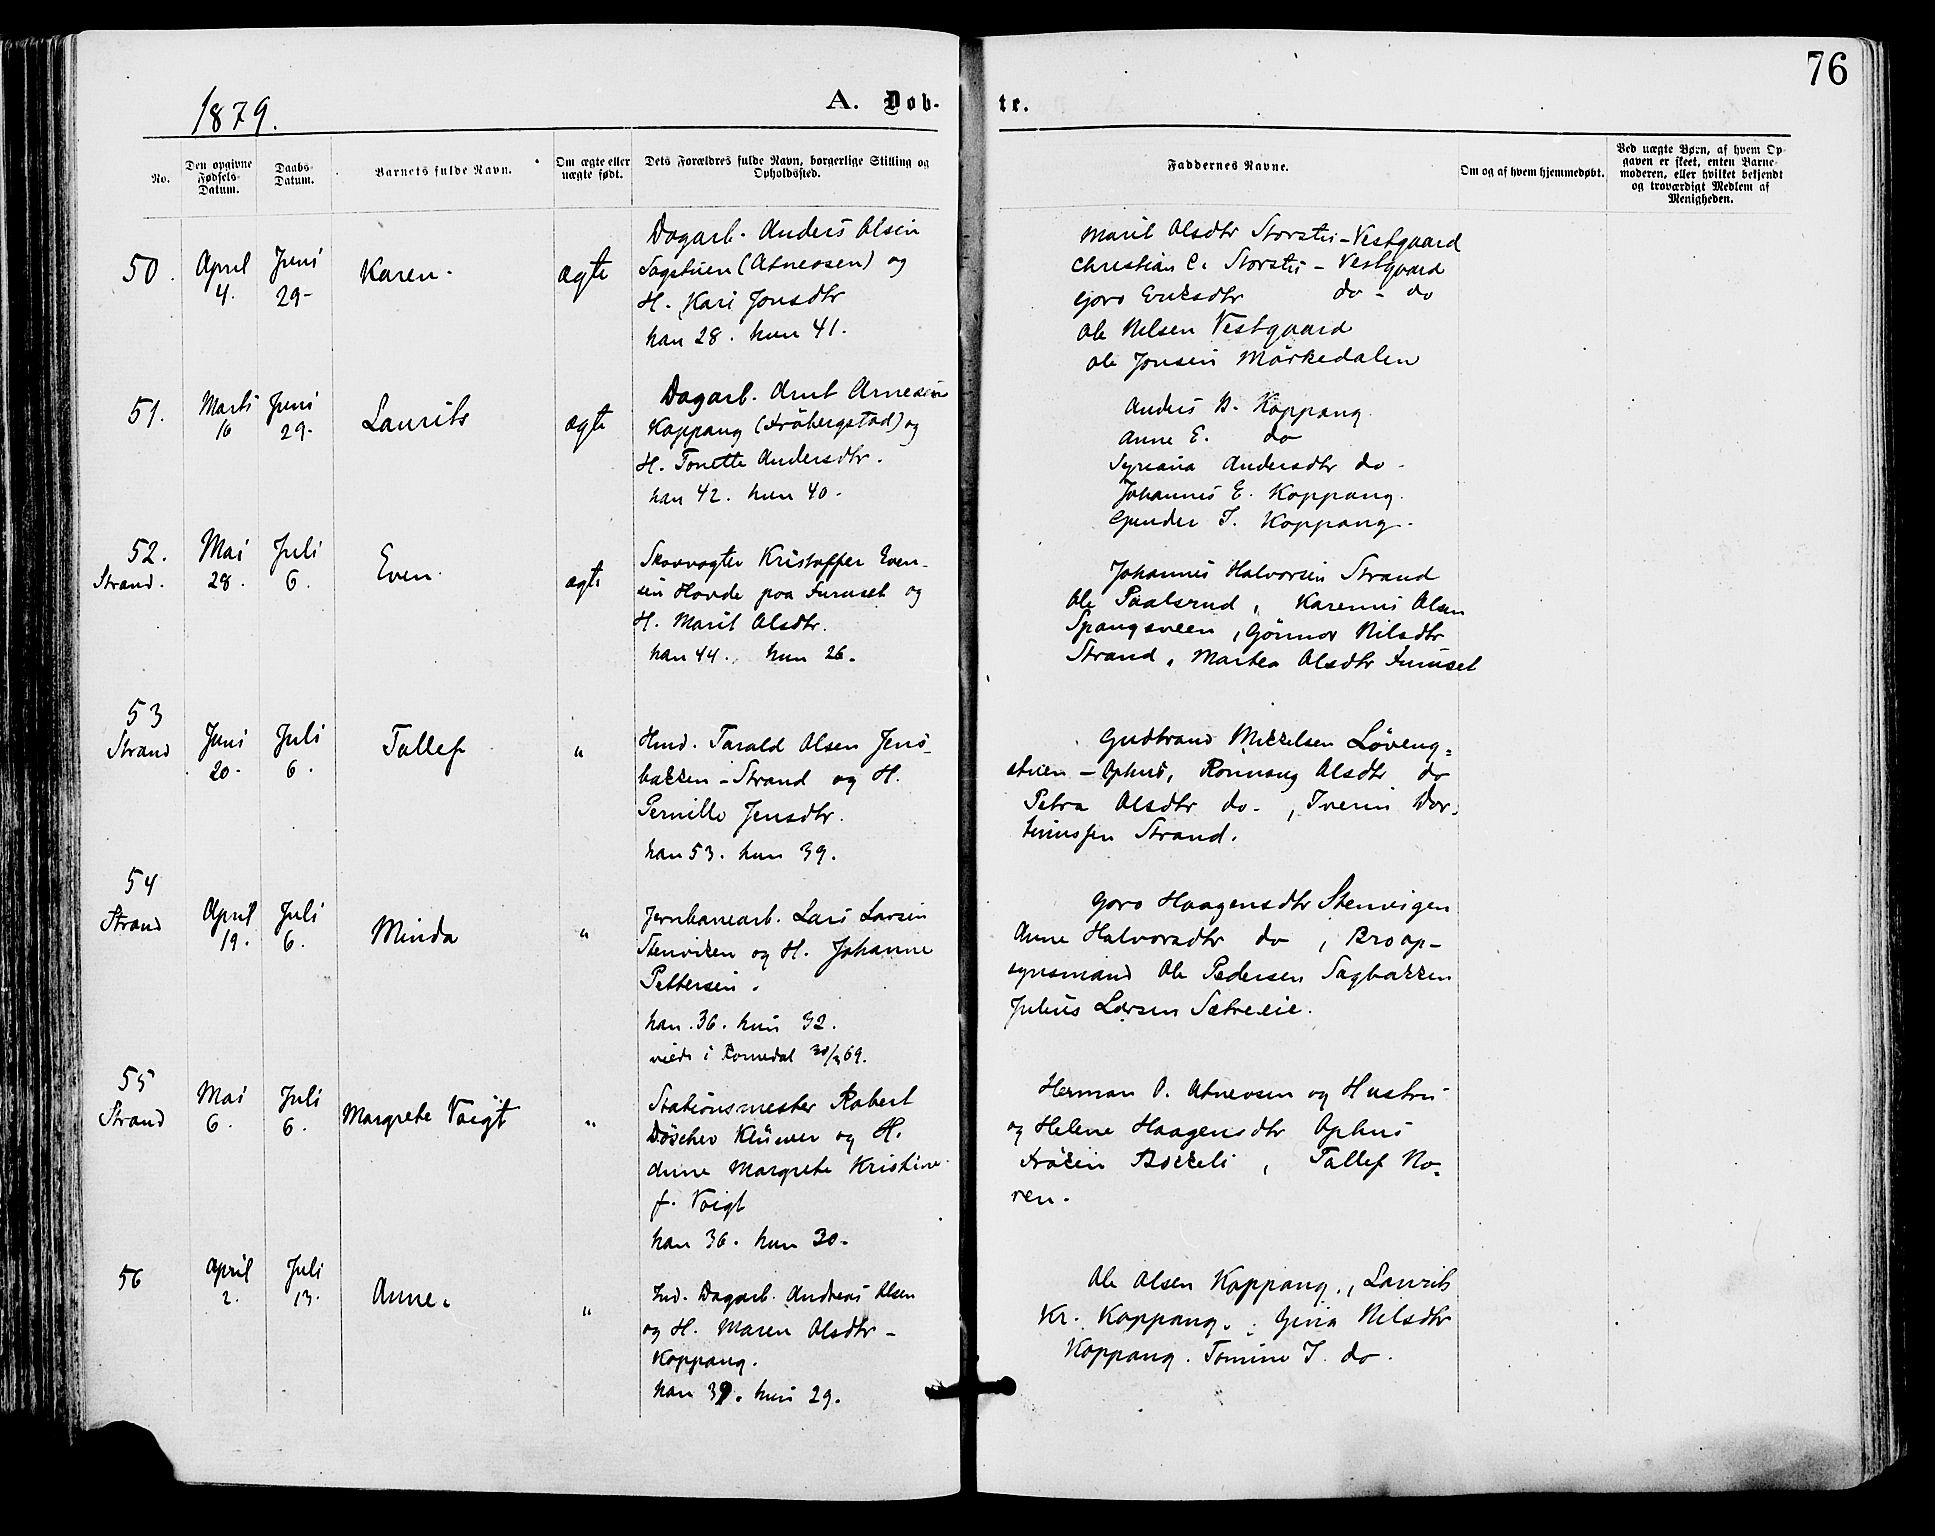 76
1879.
A. Døb-
te.
No.
Den opgivne Fødsels-Datum.
Daabs-Datum.
Barnets fulde Navn.
Om ægte eller uægte født.
Dets Forældres fulde Navn, borgerlige Stilling og Opholdssted.
Faddernes Navne.
Om og af hvem hjemmedøbt.
Ved uægte Børn, af hvem Opgaven er skeet, enten Barnemoderen, eller hvilket bekjendt og troværdigt Medlem af Menigheden.
50.
April 4.
Juni 29-
Karen.
ægte
Dagarb. Anders Olsen
Sagstuen (Atneosen) og
H. Kari Jonsdtr
han 28. hun 41.
Marit Olsdtr Storstu-Vestgaard
Christian C. Storstu - Vestgaard
Goro Eriksdtr do - do
Ole Nilsen Vestgaard
Ole Jonsen Mörkedalen
51.
Marts 16
Juni 29-
Laurits
ægte
Dagarb. Arnt Arnesen
Koppang (Fröbergstad) og
H. Tonette Andersdtr.
han 42. hun 40.
Anders B. Koppang
Anne E. do
Syriana Andersdtr do.
Johannes E. Koppang.
Gunder T. Koppang.
52.
Strand.
Mai 28.
Juli 6.
Even
ægte
Skovvogter Kristoffer Even-
sen Hovde paa Furuset og
H. Marit Olsdtr.
han 44. hun 26.
Johannes Halvorsen Strand
Ole Paalsrud, Karenus Olsen
Spangsveen, Gönnor Nilsdtr
Strand, Martea Olsdtr Furuset
53
Strand
Juni 20.
Juli 6.
Tallef
"
Hmd. Tarald Olsen Jens-
bakken-Strand og H.
Pernille Jensdtr.
han 53. hun 39.
Gudbrand Mikkelsen Løveng-
stuen - Ophus, Ronnaug Olsdtr do
Petra Olsdtr do., Iverin Mor-
tinussen Strand.
54
Strand
April 19.
Juli 6.
Minda
"
Jernbanearb. Lars Larsen
Stenviken og H. Johanne
Pettersen.
han 36. hun 32.
viede i Romedal 69.
Goro Haagensdtr Stenvigen
Anne Halvorsdtr do, Broop-
synsmand Ole Pedersen Sagbakken
Julius Larsen Sætreeie.
55
Strand
Mai 6.
Juli 6.
Margrete Voigt
"
Stationsmester Robert
Döscher Klüwer og H.
Anne Margrete Kristine
f. Voigt
han 36. hun 30.
Herman O. Atneosen og Hustru
og Helene Haagensdtr Ophus
Fröken Bökkeli, Tallef No-
ren.
56
April 2.
Juli 13.
Anne.
"
Ind. Dagarb. Andreas Olsen
og H. Maren Olsdtr -
Koppang.
han 39. hun 29.
Ole Olsen Koppang., Laurits
Kr. Koppang., Gina Nilsdtr
Koppang. Tomine T. do.